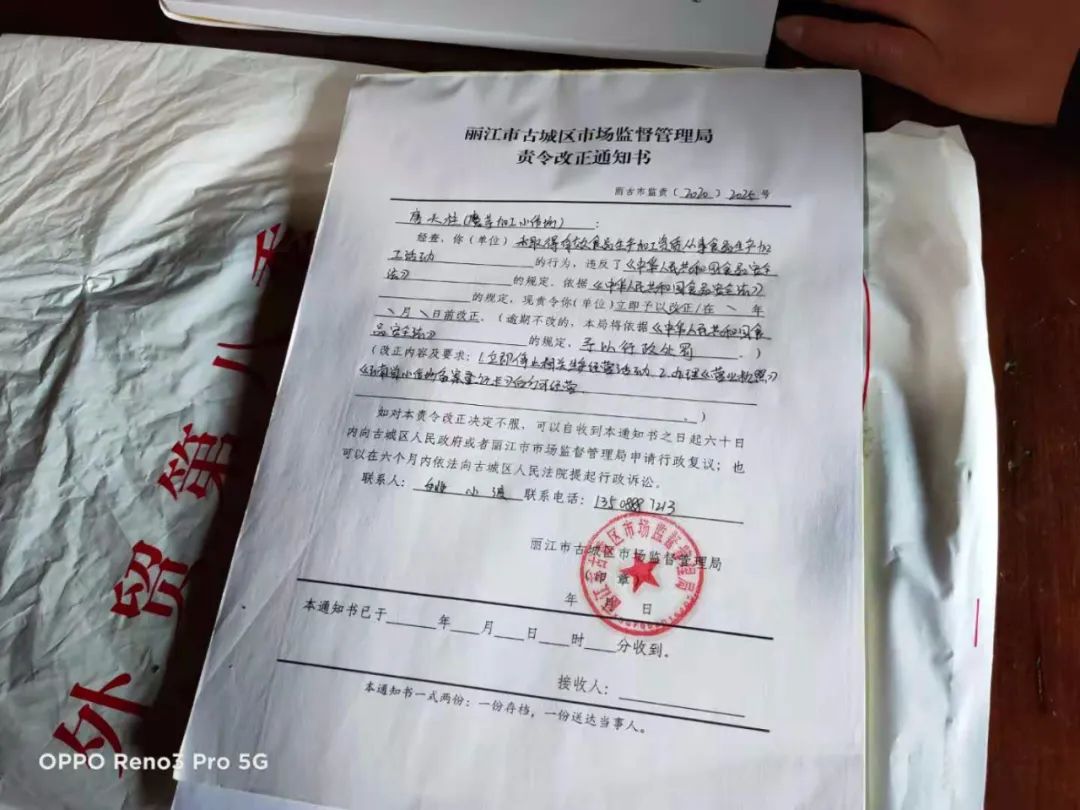 丽江市古城区市场监督管理局
责令改正通知书
丽古市监责〔2020〕2025号
唐天柱(魔芋加工小作坊)：
经查，你（单位）未取得有效食品生产加工资质从事食品生产加
工活动的行为，违反了《中华人民共和国食品安全
法》的规定。依据《中华人民共和国食品安全法》
的规定，现责令你（单位）立即予以改正/在 \ 年
\ 月 \ 日前改正。（逾期不改的，本局将依据《中华人民共和国食
品安全法》的规定，予以行政处罚。）
（改正内容及要求：1.立即停止相关生产经营活动 2.办理《营业执照》
小作坊备案登记 后方可经营
。）
如对本责令改正决定不服，可以自收到本通知书之日起六十日
内向古城区人民政府或者丽江市市场监督管理局申请行政复议；也
可以在六个月内依法向古城区人民法院提起行政诉讼。
联系人： 小 联系电话：13508897213
丽江市古城区市场监督管理局
（印章）
年 月 日
本通知书已于 年 月 日 时 分收到。
接收人：
本通知书一式两份：一份存档，一份送达当事人。
丽江市古城区市场监督管理局
外 第八
OPPO Reno3 Pro 5G